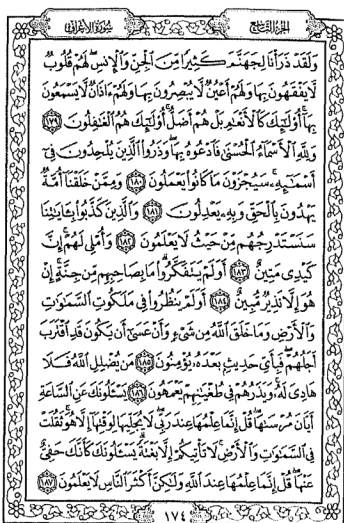 الجزء التاسع
سورة الأعراف
وَلَقَدْ ذَرَأْنَا لِجَهَنَّمَ كَثِيرًا مِّنَ ٱلْجِنِّ وَٱلْإِنسِ لَهُمْ قُلُوبٌ
لَّا يَفْقَهُونَ بِهَا وَلَهُمْ أَعْيُنٌ لَّا يُبْصِرُونَ بِهَا وَلَهُمْ ءَاذَانٌ لَّا يَسْمَعُونَ
بِهَا أُو۟لَٰٓئِكَ كَٱلْأَنْعَٰمِ بَلْ هُمْ أَضَلُّ أُو۟لَٰٓئِكَ هُمُ ٱلْغَٰفِلُونَ ١٧٩
وَلِلَّهِ ٱلْأَسْمَآءُ ٱلْحُسْنَىٰ فَٱدْعُوهُ بِهَا وَذَرُوا۟ ٱلَّذِينَ يُلْحِدُونَ فِىٓ
أَسْمَٰٓئِهِۦ سَيُجْزَوْنَ مَا كَانُوا۟ يَعْمَلُونَ ١٨٠ وَمِمَّنْ خَلَقْنَآ أُمَّةٌ
يَهْدُونَ بِٱلْحَقِّ وَبِهِۦ يَعْدِلُونَ ١٨١ وَٱلَّذِينَ كَذَّبُوا۟ بِـَٔايَٰتِنَا
سَنَسْتَدْرِجُهُم مِّنْ حَيْثُ لَا يَعْلَمُونَ ١٨٢ وَأُمْلِى لَهُمْ إِنَّ
كَيْدِى مَتِينٌ ١٨٣ أَوَلَمْ يَتَفَكَّرُوا۟ مَا بِصَاحِبِهِم مِّن جِنَّةٍ إِنْ
هُوَ إِلَّا نَذِيرٌ مُّبِينٌ ١٨٤ أَوَلَمْ يَنظُرُوا۟ فِى مَلَكُوتِ ٱلسَّمَٰوَٰتِ
وَٱلْأَرْضِ وَمَا خَلَقَ ٱللَّهُ مِن شَىْءٍ وَأَنْ عَسَىٰٓ أَن يَكُونَ قَدِ ٱقْتَرَبَ
أَجَلُهُمْ فَبِأَىِّ حَدِيثٍۭ بَعْدَهُۥ يُؤْمِنُونَ ١٨٥ مَن يُضْلِلِ ٱللَّهُ فَلَا
هَادِىَ لَهُۥ وَيَذَرُهُمْ فِى طُغْيَٰنِهِمْ يَعْمَهُونَ ١٨٦ يَسْـَٔلُونَكَ عَنِ ٱلسَّاعَةِ
أَيَّانَ مُرْسَىٰهَا قُلْ إِنَّمَا عِلْمُهَا عِندَ رَبِّى لَا يُجَلِّيهَا لِوَقْتِهَآ إِلَّا هُوَ ثَقُلَتْ
فِى ٱلسَّمَٰوَٰتِ وَٱلْأَرْضِ لَا تَأْتِيكُمْ إِلَّا بَغْتَةً يَسْـَٔلُونَكَ كَأَنَّكَ حَفِىٌّ
عَنْهَا قُلْ إِنَّمَا عِلْمُهَا عِندَ ٱللَّهِ وَلَٰكِنَّ أَكْثَرَ ٱلنَّاسِ لَا يَعْلَمُونَ ١٨٧
١٧٤